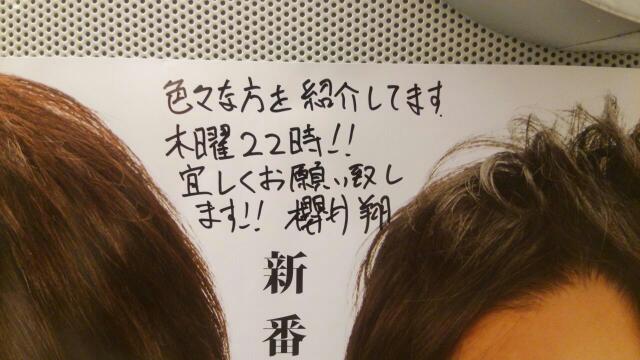 色々な方を紹介してます
木曜22時!!
宜しくお願い致し
ます!! 櫻井翔
新番